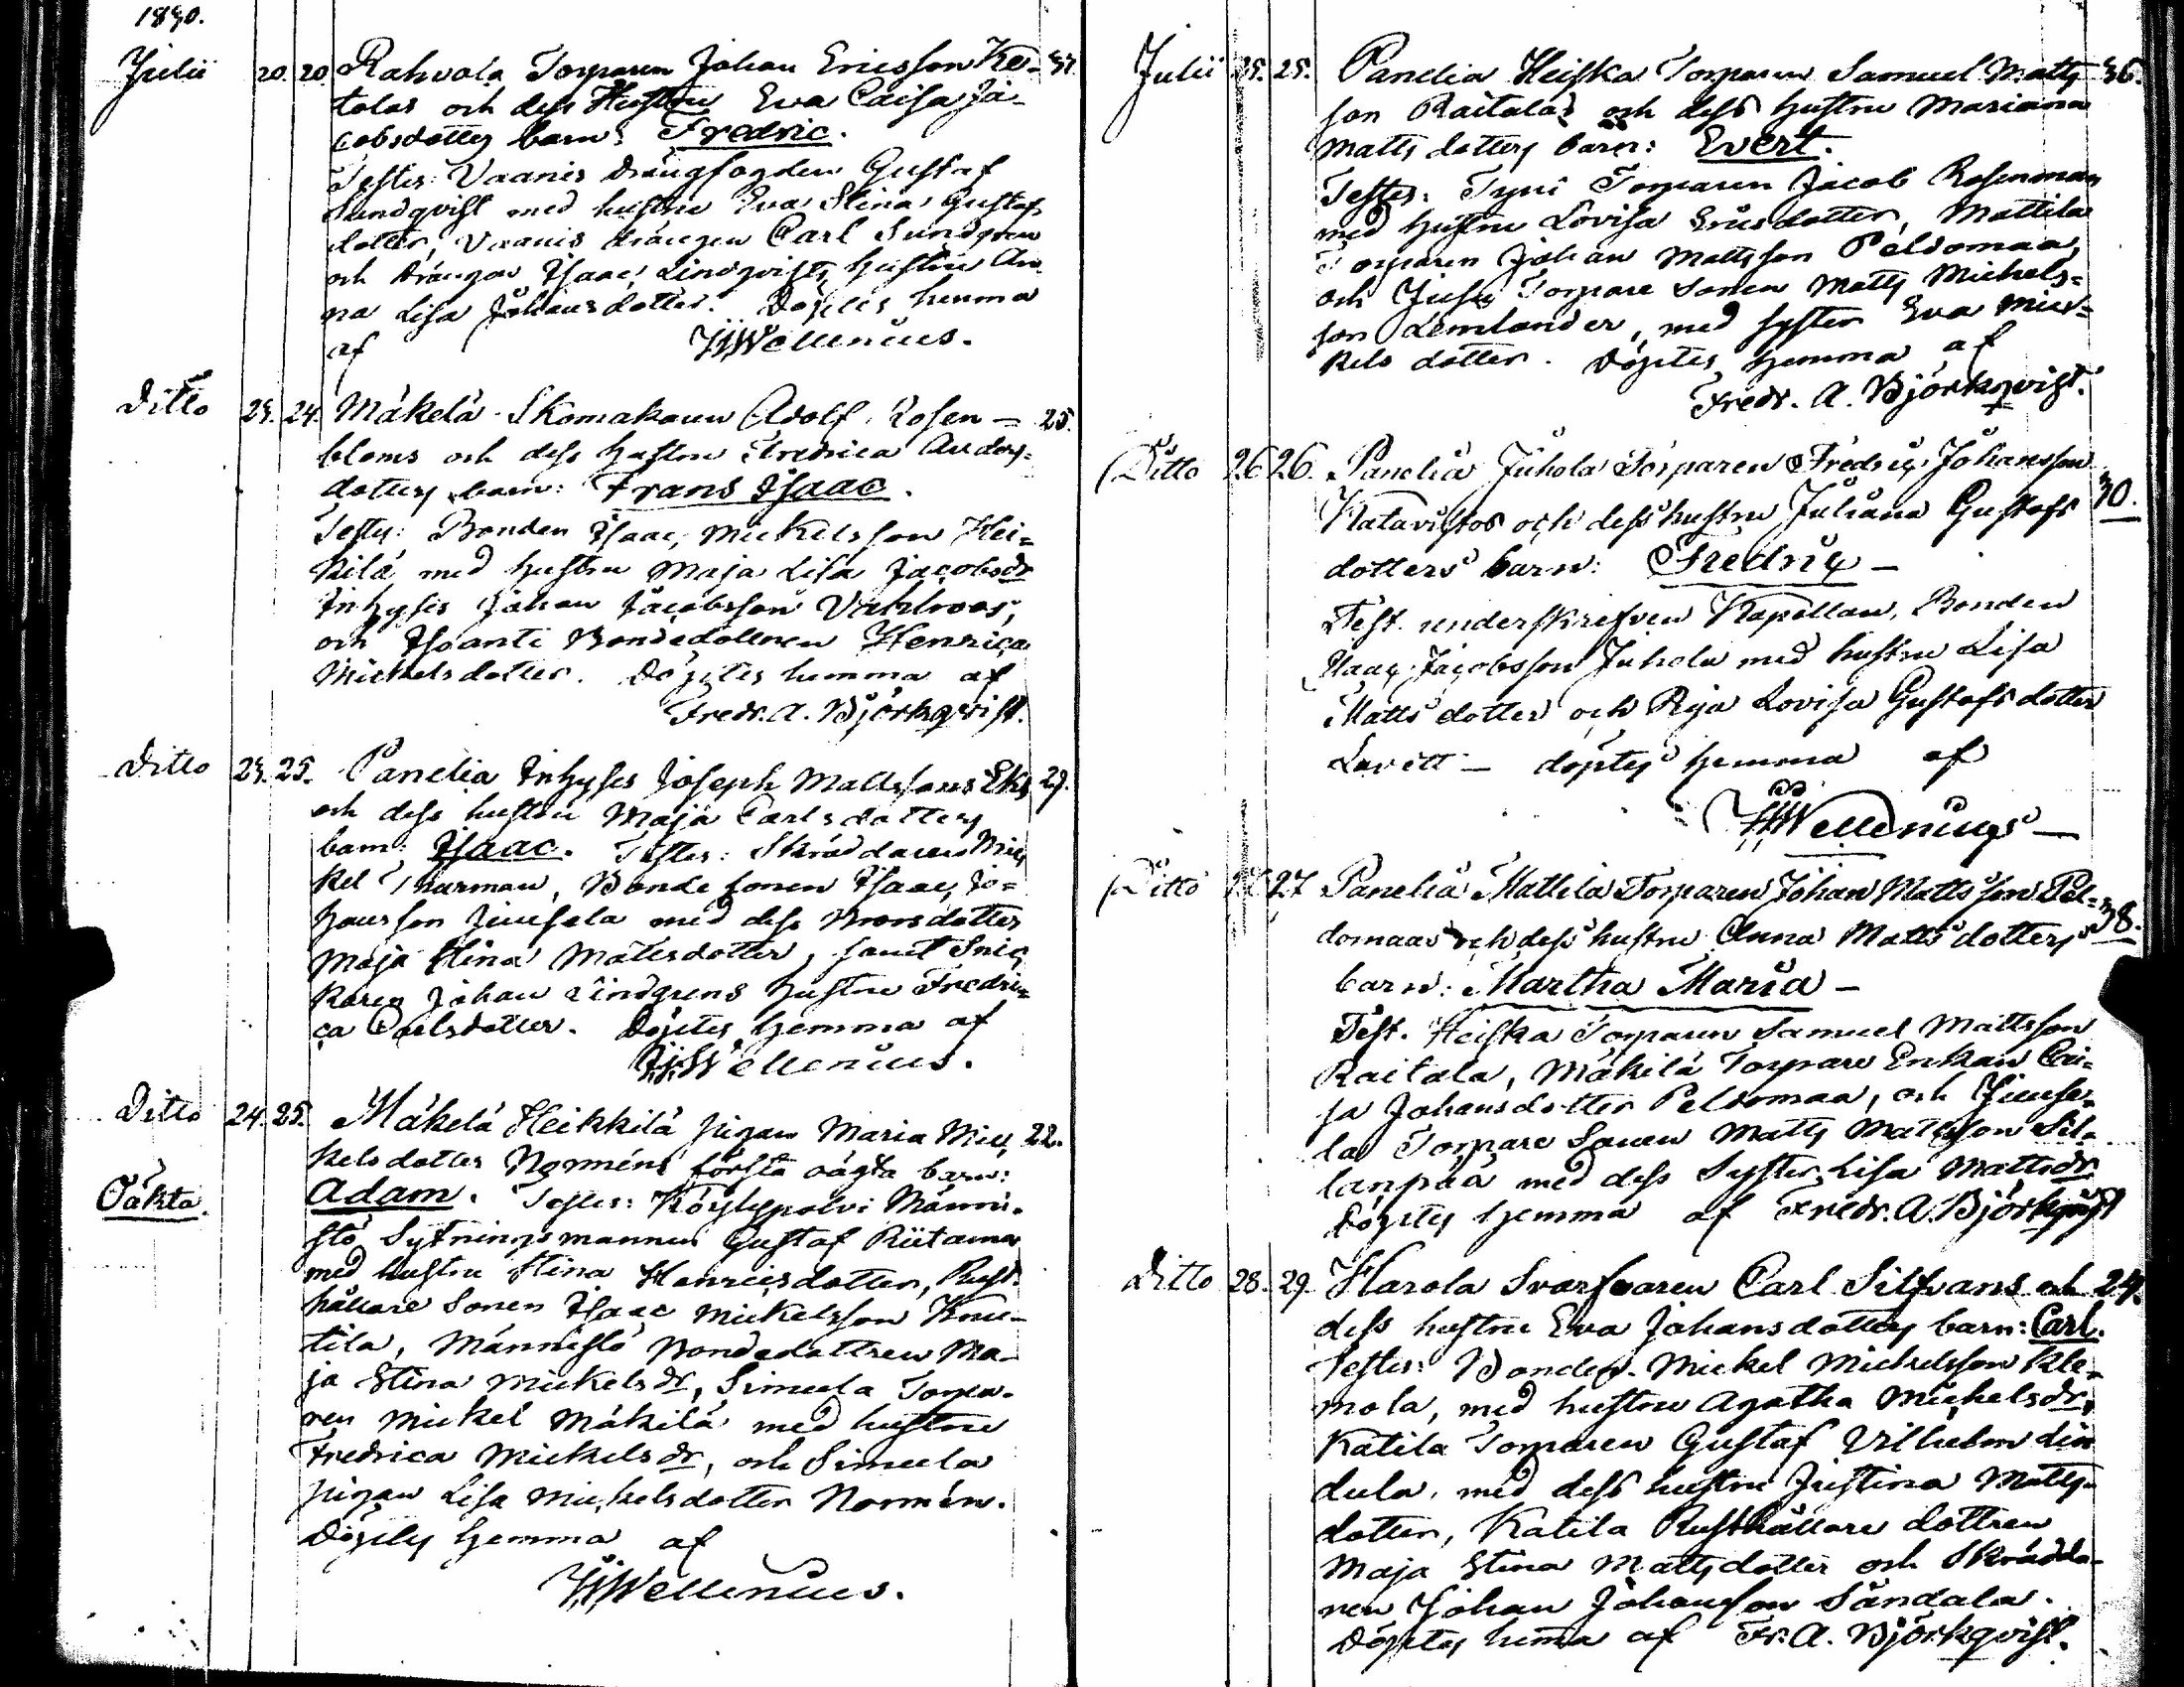 1890.
Julii 20. 20. Rahvola Torparen Johan Ericsson Ke- 37.
talas och dess Hustru Eva Caisa Ja-
cobsdotters barn: Fredric.
Testes: Vaanis Drängfogden Gustaf
Sundqvist med hustru Eva Stina Gustafs
dotter, Vaanis drängen Carl Sundgren
och Drängen Isaac Lindqvists hustru An
na Lisa Johansdotter. Döptes hemma
af HWellenius.
Ditto 23. 24. Mäkelä Skomakaren Adolf Rosen= 25.
bloms och dess hustru Fredrica Anders=
dotters barn: Frans Isaac.
Testes: Bonden Isaac Mickelsson Hei=
kilä med hustru Maja Lisa Jacobsdr
Inhyses Johan Jacobsson Vahlroos,
och Isoanti Bondedottren Henrica
Mickelsdotter. Döptes hemma af
Fredr. A. Björkqvist.
Ditto 23. 25. Panelia Inhyses Joseph Mattssons Eks 29.
och dess hustru Maja Carlsdotters
barn: Isaac. Testes: Skräddaren Mic
kel Thurman, Bonde sonen Isaac Jo=
hansson Juusela med dess Brorsdotter
Maja Stina Matsdotter, samt Snic
karen Johan Lindgrens hustru Fredri=
ca Carlsdotter. Döptes hemma af
HWellenius.
Ditto 24. 25. Mäkelä Heikkilä pigan Maria Mic 22.
kelsdotter Norméns första oägta barn:
Oäkta. Adam. Testes: Köylypolvi Männi-
stö Sytningsmannen Gustaf Riitamaa
med hustru Stina Henricsdotter, Rust-
hållare Sonen Isaac Mickelsson Knu-
tila, Männistö Bondedottren Ma-
ja Stina Mickelsdr, Simula Torpa-
ren Mickel Mäkilä med hustru
Fredrica Mickelsdr, och Simula
pigan Lisa Mickelsdotter Normén.
Döptes hemma af
HWellenius.
Julii 25. 25. Panelia Heiska Torparen Samuel Matts 36.
son Raitalas och dess hustru Mariana
Matts dotters barn: Evert.
Testes: Tyni Torparen Jacob Rosenman
med hustru Lovisa Ericsdotter, Mattila
Torparen Johan Mattsson Peldomaa,
och Torpare Sonen Matts Michels=
son Lemlander, med syster Eva Mic=
kels dotter. Döptes hemma af
Fredr. A. Björkqvist.
Ditto 26 26. Panelia Juhola Torparen Fredric Johansson 30.
Katavistos och dess hustru Juliana Gustafs
dotters barn: Fredric —
Test. underskrefven Kapellan, Bonden
Isaac Jacobsson Juhola med hustru Lisa
Matts dotter och Pign Lovisa Gustafs dotter
Lavett — döptes hemma af
HWellenius —
Ditto 27 Panelia Mattila Torparen Johan Mattsson Pel= 38.
domaas och dess hustru Anna Matts dotters
barn: Martha Maria —
Test. Heiska Torparen Samuel Mattsson
Raitala, Mäkilä Torpare Enkan Cai=
sa Johansdotter Peldomaa, och Juuse=
la Torpare Sonen Matts Mattsson Sil=
lanpää med dess Syster Lisa Mattsdr
Döptes hemma af Fredr. A. Björkqvist
Ditto 28. 29. Harola Svarfvaren Carl Silfvans och 24.
dess hustru Eva Johansdotters barn: Carl.
Testes: Bonden Mickel Michelsson Kle=
mola, med hustru Agatha Mickelsdr,
Katila Torparen Gustaf Vilhelm Lin
dula, med dess hustru Justina Matts-
dotter, Katila Rusthållare dottren
Maja Stina Mattsdotter och Skrädda-
ren Johan Johansson Sandala.
Döptes hema af Fr. A. Björkqvist.